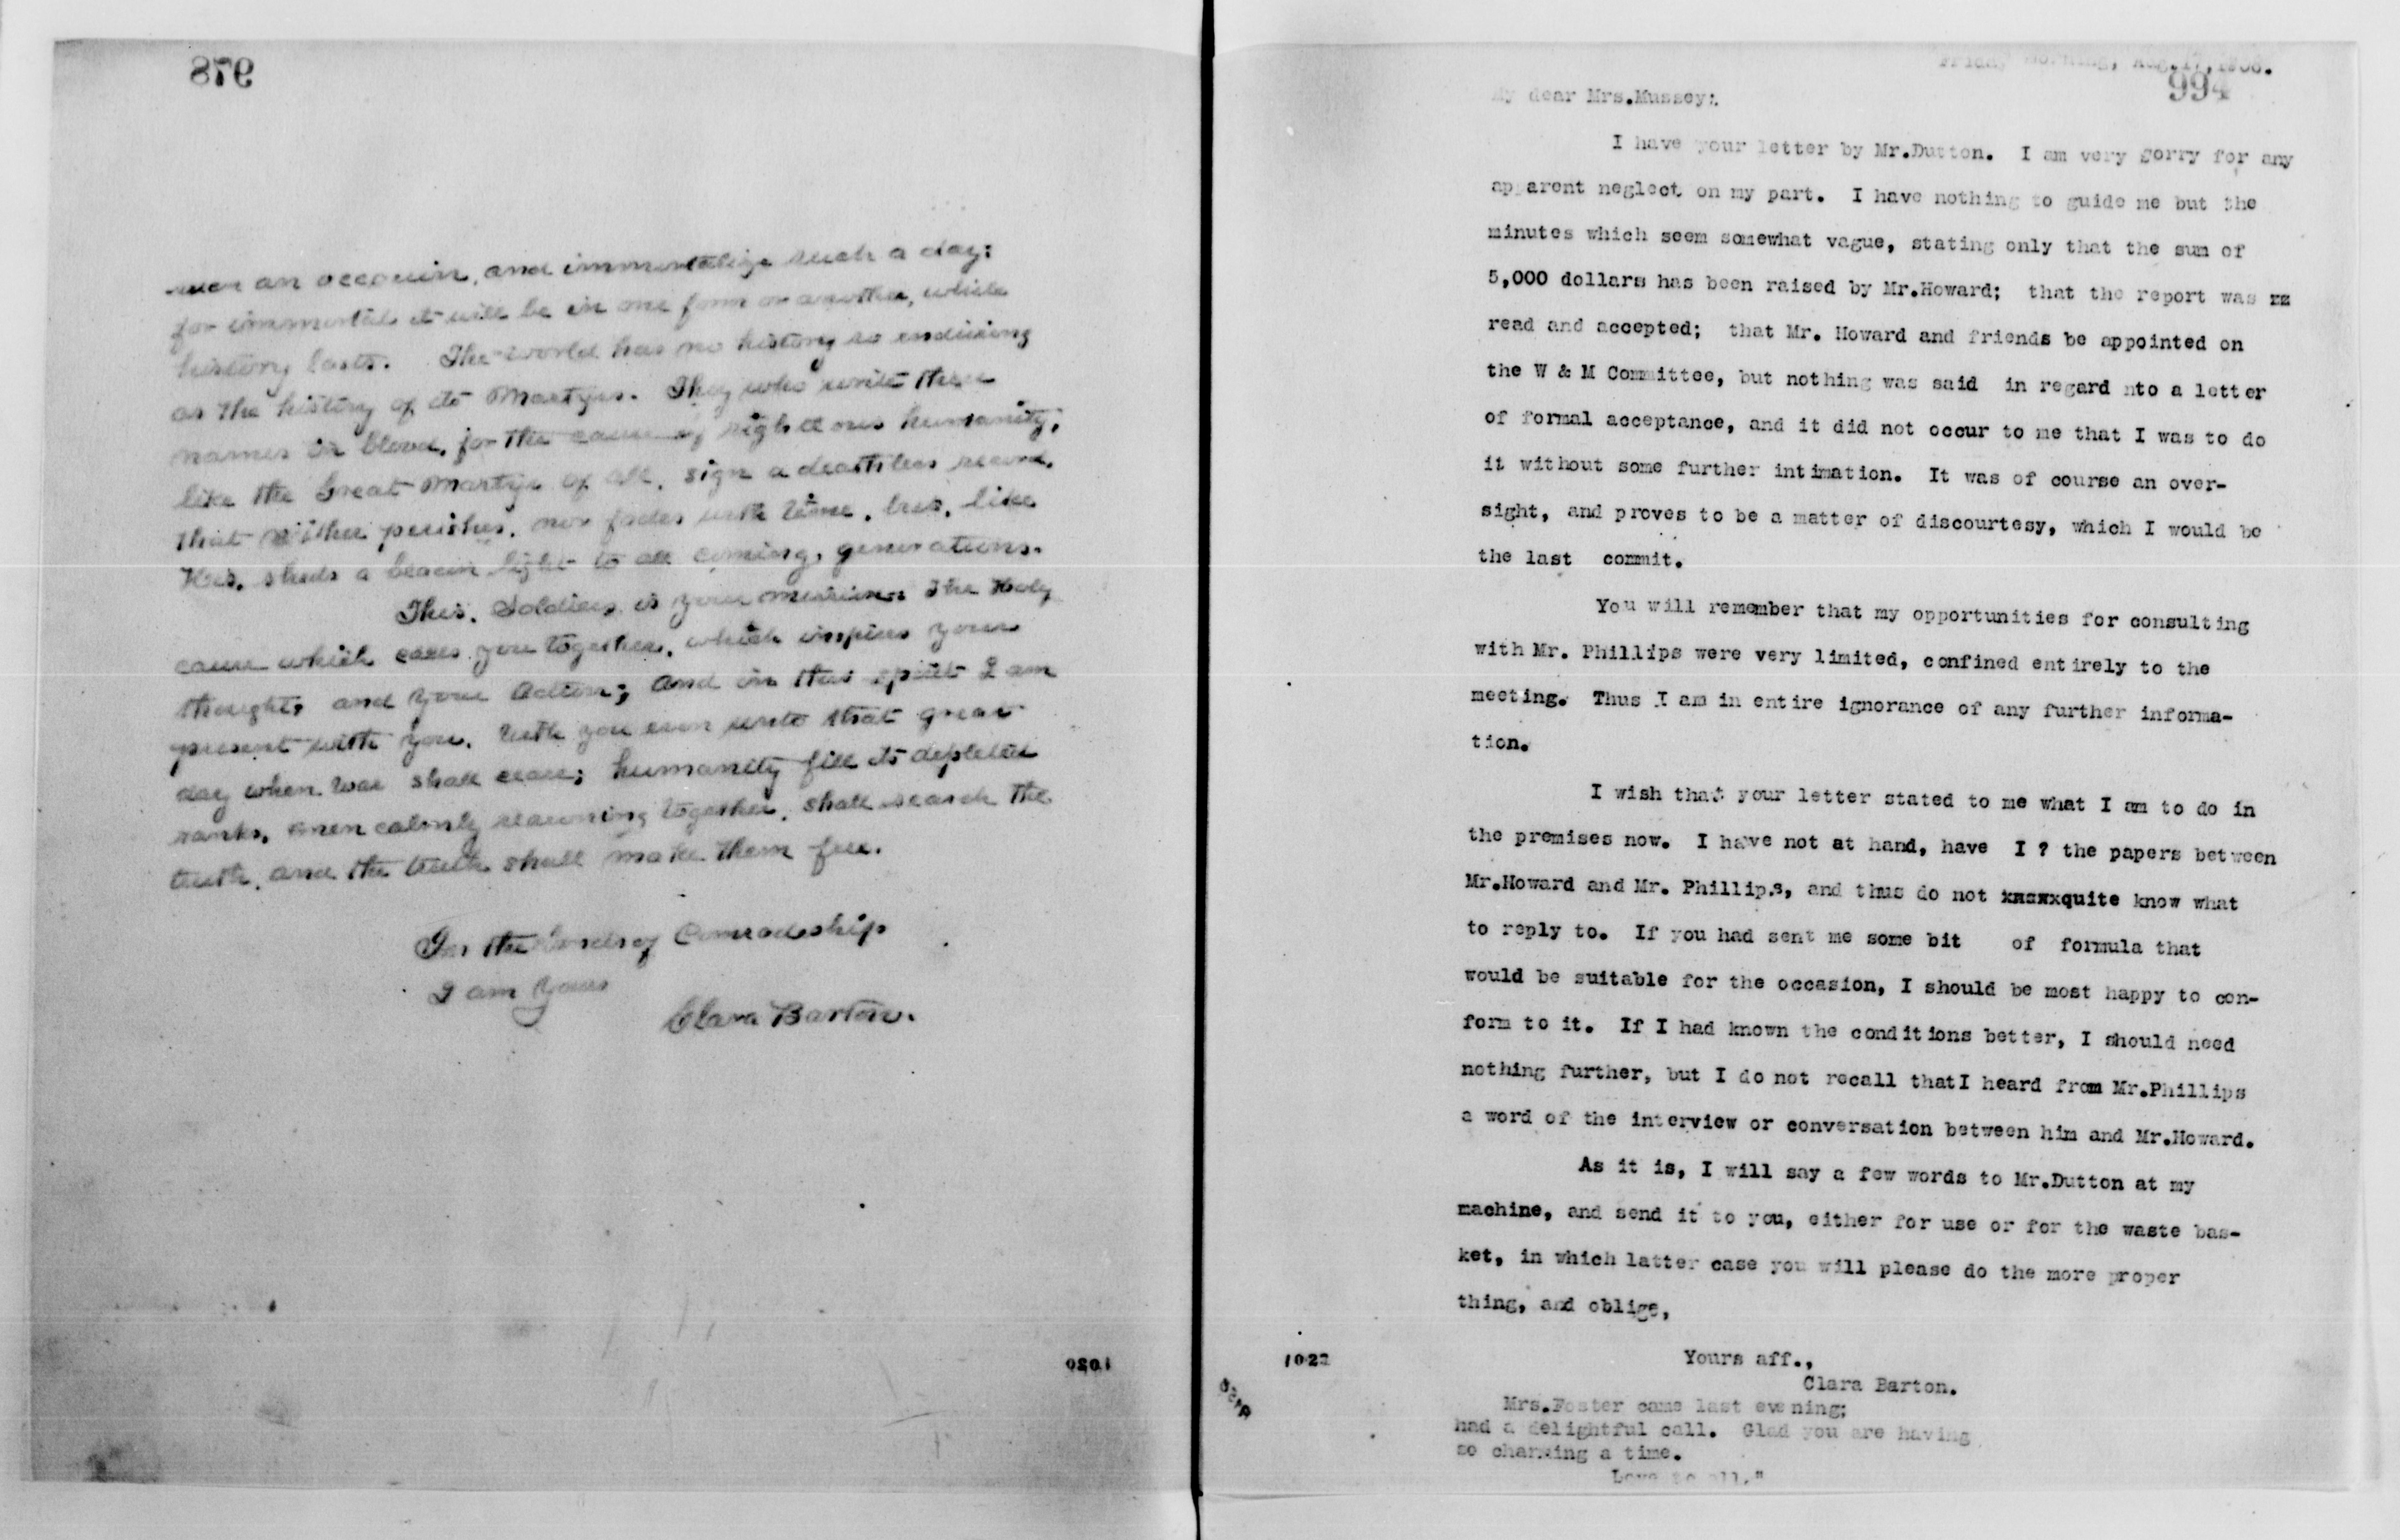 978
such an occasion, and immortalize such a day;
for immortal it will be in one form or another, while
history lasts. The world has no history so enduring
as the history of its Martyrs. They who write their
names in blood, for the cause of righteous humanity,
like the Great Martyr of all, sign a deathless record,
that neither perishes, nor fades with time, but, like
His, sheds a beacon light to all coming, generations.
This, Soldiers, is your mission. The Holy
cause which calls you together, which inspires your
thought, and your action; and in that spirit I am
present with you. With you even unto that great
day when war shall cease; humanity fill its depleted
ranks, men calmly reasoning together, shall search the
truth, and the truth shall make them free.
In the bonds of Comradeship
I am Yours
Clara Barton.
1020
Friday Morning, Aug.17,1906.
994
My dear Mrs.Mussey:
I have your letter by Mr.Dutton. I am very sorry for any
apparent neglect on my part. I have nothing to guide me but the
minutes which seem somewhat vague, stating only that the sum of
5,000 dollars has been raised by Mr.Howard; that the report was xx
read and accepted; that Mr. Howard and friends be appointed on
the W & M Committee, but nothing was said in regard nto a letter
of formal acceptance, and it did not occur to me that I was to do
it without some further intimation. It was of course an over-
sight, and proves to be a matter of discourtesy, which I would be
the last commit.
You will remember that my opportunities for consulting
with Mr. Phillips were very limited, confined entirely to the
meeting. Thus I am in entire ignorance of any further informa-
tion.
I wish that your letter stated to me what I am to do in
the premises now. I have not at hand, have I ? the papers between
Mr.Howard and Mr. Phillips, and thus do not quite know what
to reply to. If you had sent me some bit of formula that
would be suitable for the occasion, I should be most happy to con-
form to it. If I had known the conditions better, I should need
nothing further, but I do not recall thatI heard from Mr.Phillips
a word of the interview or conversation between him and Mr.Howard.
As it is, I will say a few words to Mr.Dutton at my
machine, and send it to you, either for use or for the waste bas-
ket, in which latter case you will please do the more proper
thing, and oblige,
Yours aff.,
Clara Barton.
1022
Mrs.Foster came last evening;
had a delightful call. Glad you are having
so charming a time.
Love to all."